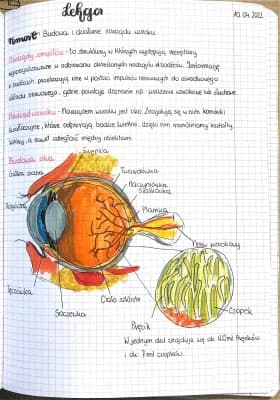 Lekcja
10.04.2022
Temat: Budowa i działanie narządu wzroku
Narządy zmysłów - to struktury w których występują receptory
wyspecjalizowane w odbieraniu określonych rodzajów bodźców. Informacje
o bodźcach przekazują one w postaci impulsów nerwowych do ośrodkowego
układu nerwowego, gdzie powstaje
wrażenie wzrokowe lub słuchowe
Narząd wzroku - Narządem wzroku jest oko. Znajdują się w nich komórki
które odbierają bodźce świetlne, dzięki nim rozróżniamy kształty,
kolory, a nawet odległość między obiektami.
Budowa oka
Gałka oczna
Twardówka
Naczyniówka
Siatkówka
Plamka
Rogówka
Nerw wzrokowy
Tęczówka
Ciało szkliste
Soczewka
Czopek
Pręcik
W jednym oku znajduje się ok. 120 mln pręcików
i ok. 7 mln czopków